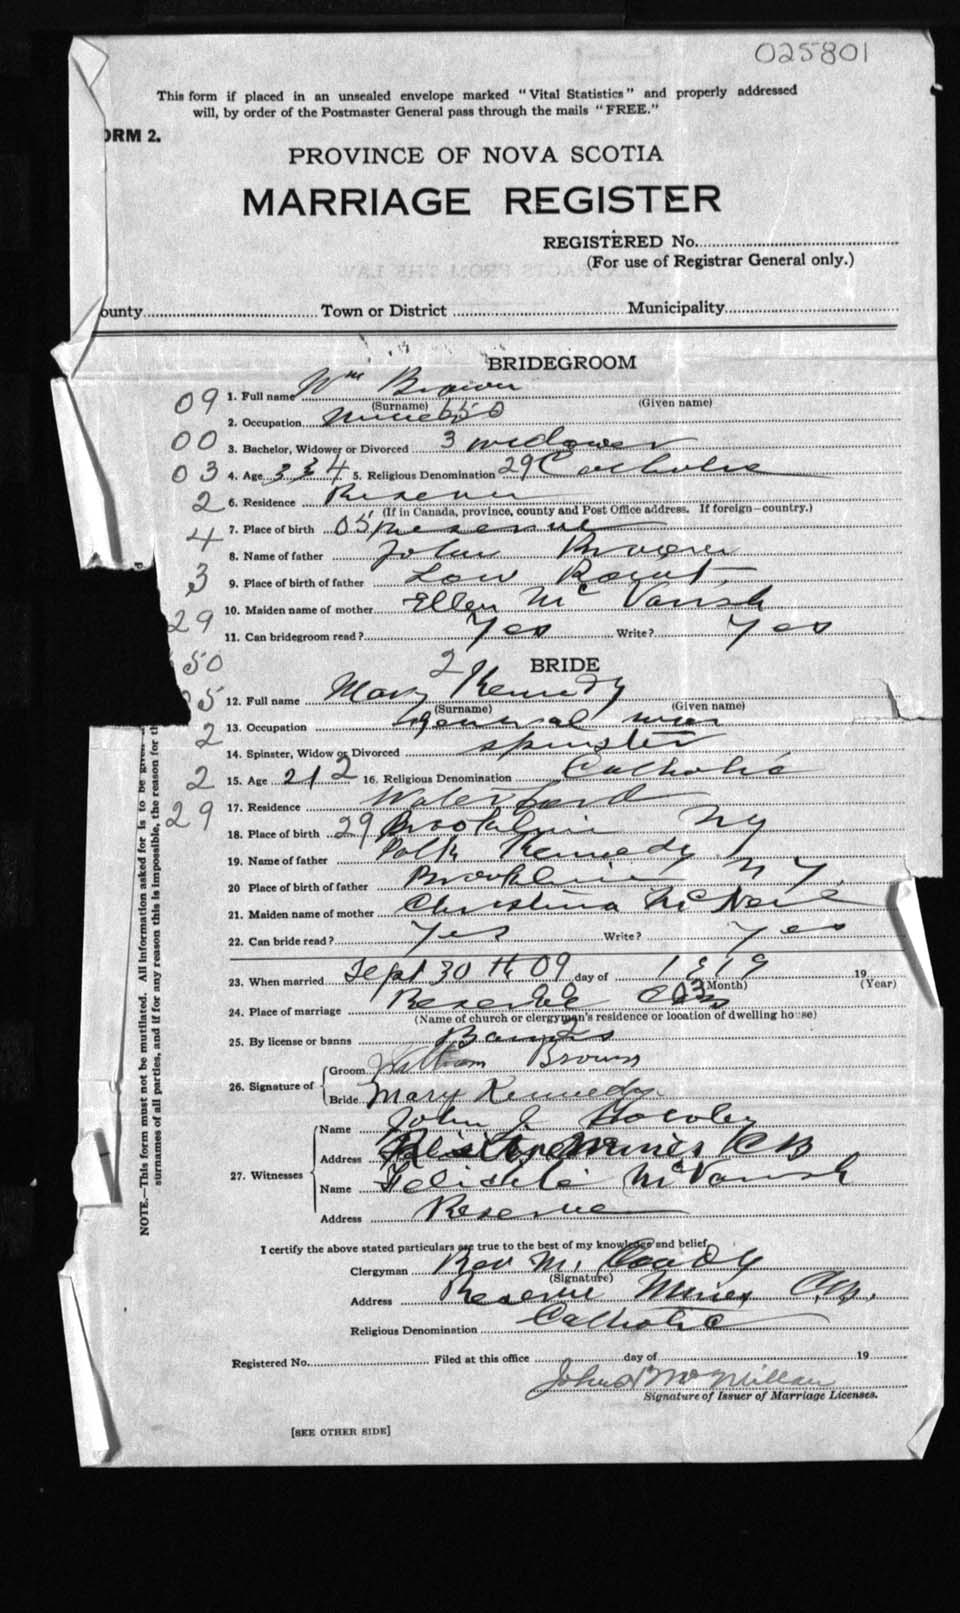 025801
This form if placed in an unsealed envelope marked "Vital Statistics" and properly addressed
will, by order of the Postmaster General pass through the mails "FREE."
ORM 2.
PROVINCE OF NOVA SCOTIA
MARRIAGE REGISTER
REGISTERED No.
(For use of Registrar General only.)
ounty Town or District Municipality
BRIDEGROOM
09 1. Full name Wm Brown
(Surname) (Given name)
2. Occupation Miner 650
00 3. Bachelor, Widower or Divorced 3 widower
03 4. Age 33 4 5. Religious Denomination 29 Catholic
2 6. Residence Reserve
(If in Canada, province, county and Post Office address. If foreign—country.)
4 7. Place of birth 05 Reserve
8. Name of father John Brown
3 9. Place of birth of father Low Point
10. Maiden name of mother Ellen Mc Varish
29 11. Can bridegroom read? Yes Write? Yes
50 2 BRIDE
5 12. Full name Mary Kennedy
(Surname) (Given name)
2 13. Occupation General
14. Spinster, Widow or Divorced spinster
2 15. Age 21 2 16. Religious Denomination Catholic
29 17. Residence Waterford
18. Place of birth 29 Brooklin NY
19. Name of father Kennedy
20 Place of birth of father Brooklin N Y.
21. Maiden name of mother Christina McNeil
22. Can bride read? Yes Write? Yes
23. When married Sept 30th 09 day of 1919 19
(Month) (Year)
24. Place of marriage Reserve
(Name of church or clergyman's residence or location of dwelling house)
25. By license or banns Banns
26. Signature of Groom William Brown
Bride Mary Kennedy
27. Witnesses
Name John J
Address Mines CB
Name Mc Varish
Address Reserve
I certify the above stated particulars are true to the best of my knowledge and belief,
Clergyman Rev M. Coady
(Signature)
Address Reserve Mines C.B.
Religious Denomination Catholic
Registered No. Filed at this office day of 19
John McMillan
Signature of Issuer of Marriage Licenses.
[SEE OTHER SIDE]
NOTE.—This form must not be mutilated. All information asked for is to be given
surnames of all parties, and if for any reason this is impossible, the reason for th